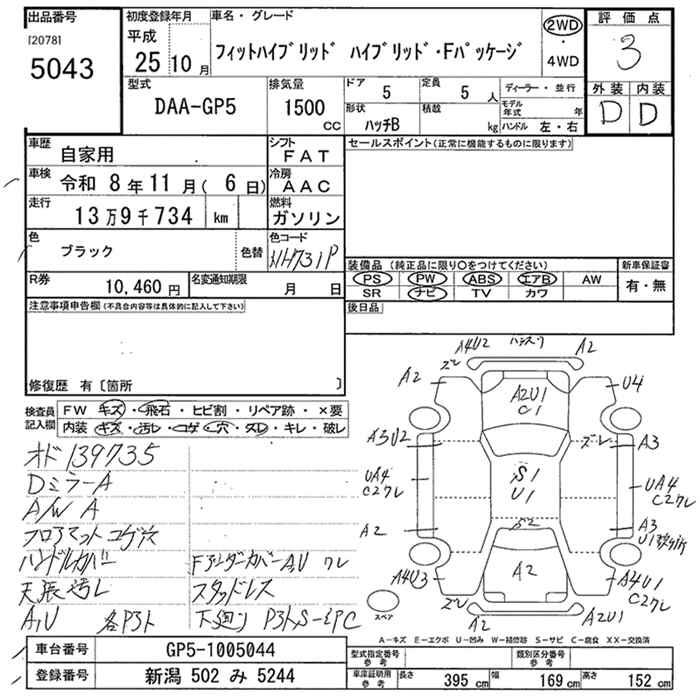 出品番号
[2078]
5043
初度登録年月
平成
25 10 月
車名・グレード
フィットハイブリッド ハイブリッド・Fパッケージ
2WD
・
4WD
評価点
3
外装 内装
D D
型式
DAA-GP5
排気量
1500
CC
ドア
5
定員
5 人
形状
ハッチB
積載
kg
ディーラー・並行
モデル年式 年
ハンドル 左・右
車歴
自家用
シフト
FAT
車検
令和 8年 11月( 6日)
冷房
AAC
走行
13万9千734 km
燃料
ガソリン
色
ブラック
色替
色コード
NH731P
R券
10,460 円
名変通知期限
月 日
セールスポイント(正常に機能するものに限ります)
装備品 (純正品に限り○をつけてください)
新車保証書
PS PW ABS エアB AW
有・無
SR ナビ TV カワ
後日品
注意事項申告欄(不具合内容等は具体的に記入して下さい)
修復歴 有〔箇所 〕
検査員
記入欄
FW キズ・飛石・ヒビ割・リペア跡・×要
内装 キズ・汚レ・コゲ・穴・スレ・キレ・破レ
オド139735
DミラーA
A/W A
フロアマットコゲ穴
ハンドルカバー
天張汚レ
A,U 各Pヨト
FアンダーカバーA,U ワレ
スタッドレス
下廻り Pヨト,S-EPC
A4U2
A2
ズレ
A2
U4
A2U1
C1
A3U2
ズレ
A3
UA4
C2ワレ
S1
U1
UA4
C2ワレ
S2
A2
A3
A2
A4U3
A4U1
C2ワレ
ズレ
A1
A2U1
スペア
A-キズ E-エクボ U-凹み W-補修跡 S-サビ C-腐食 XX-交換済
車台番号
GP5-1005044
登録番号
新潟 502 み 5244
型式指定番号
参考
類別区分番号
参考
車庫証明用
参考
長さ
395 cm
幅
169 cm
高さ
152 cm